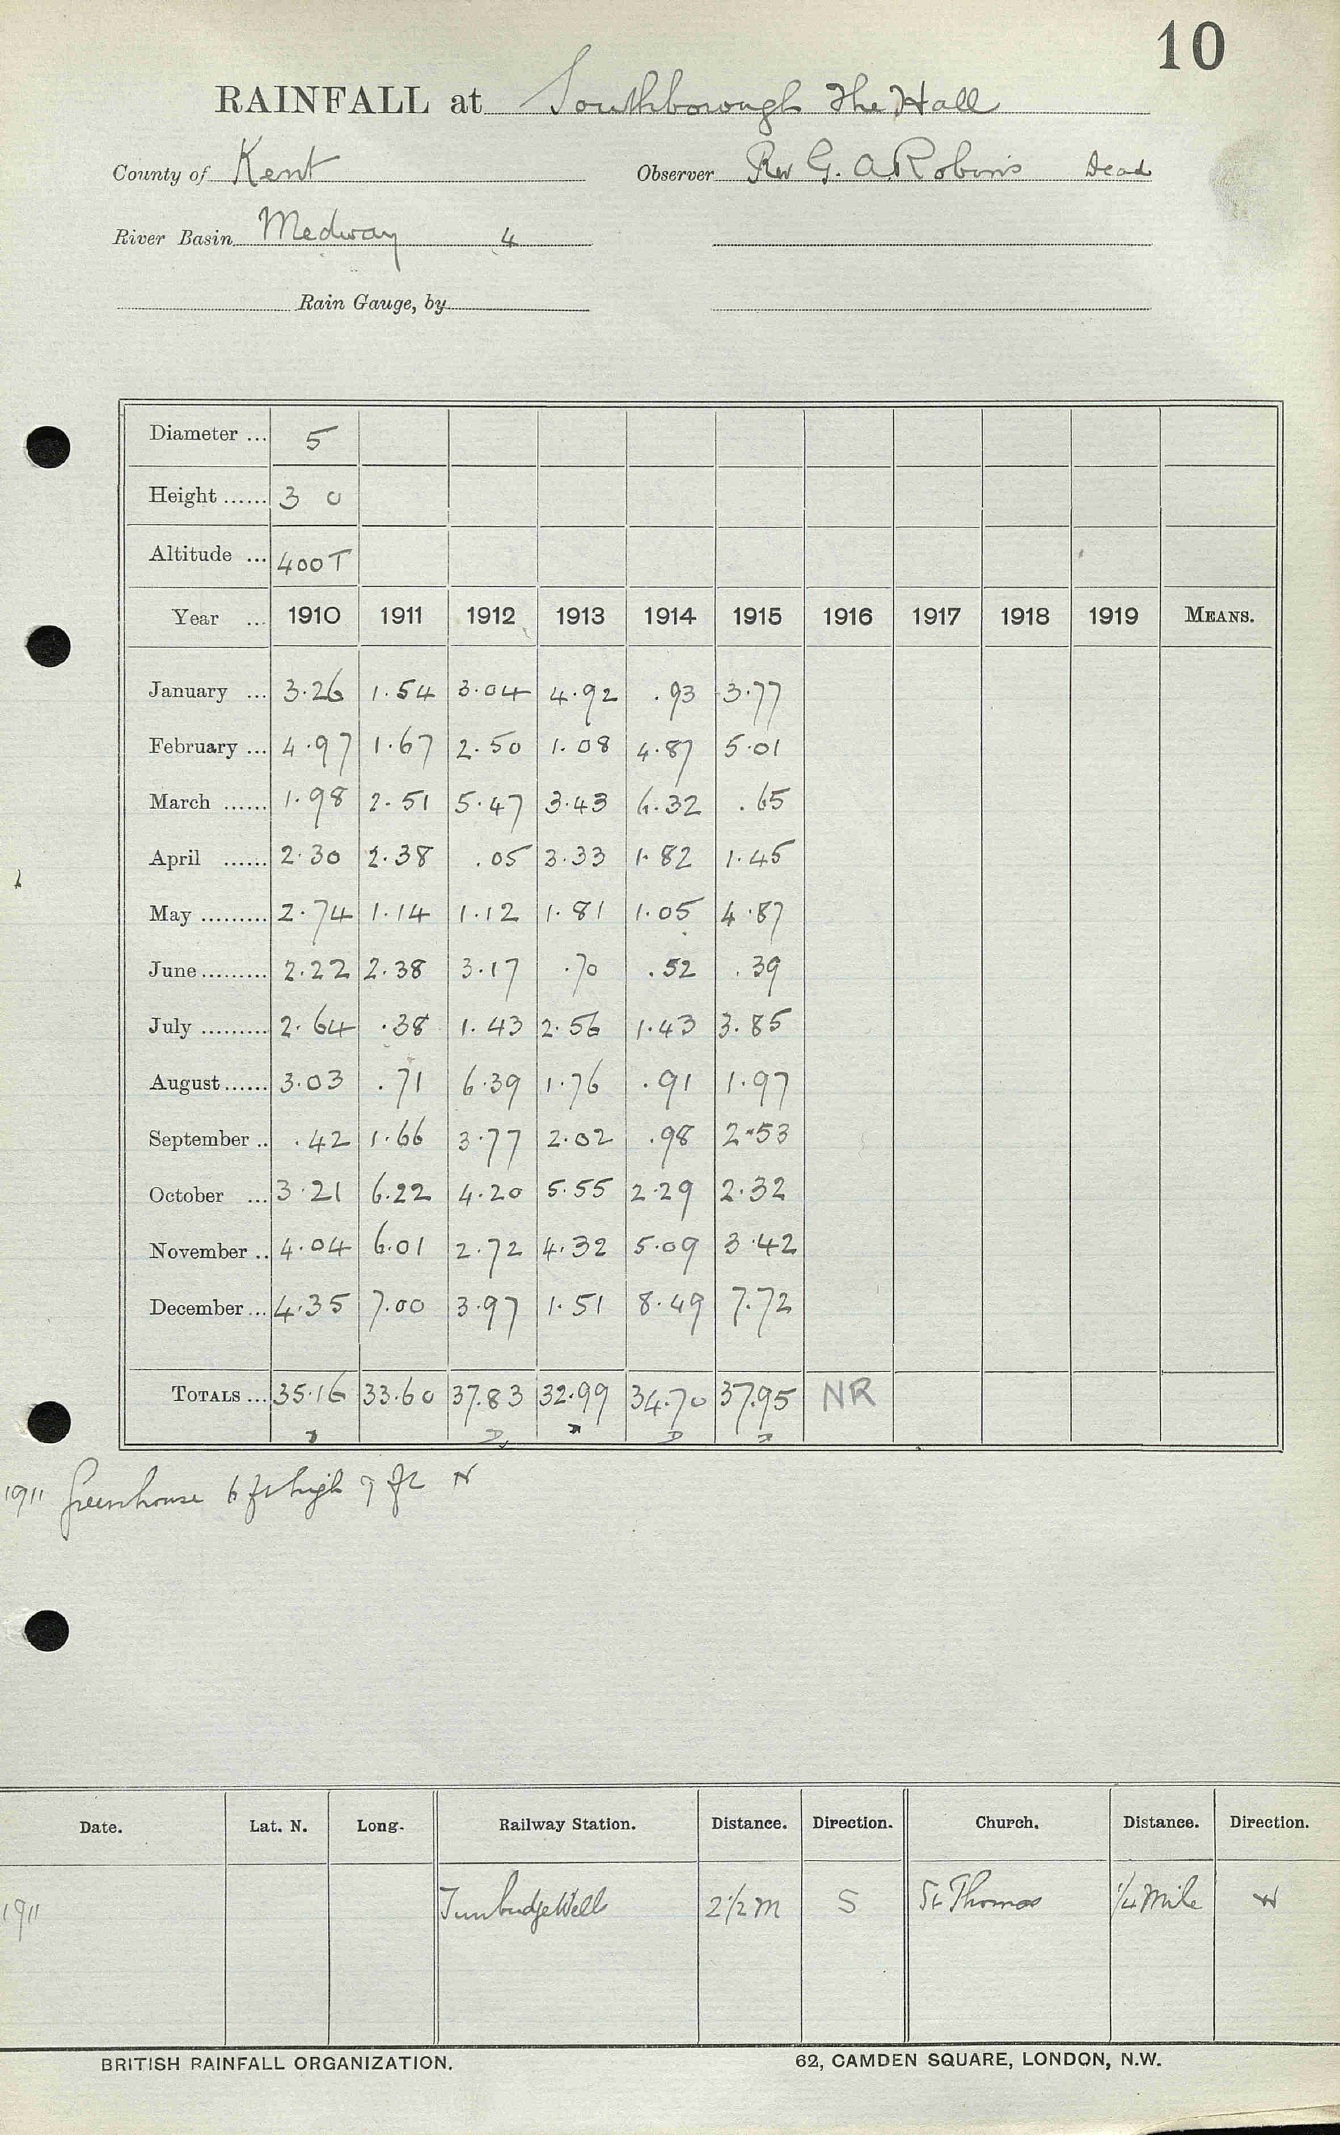 10
RAINFALL at Southborough The Hall
County of Kent Observer Rev G. A. Robins Dead
River Basin Medway 4
Rain Gauge, by
Diameter ... 5
Height ...... 3 0
Altitude ... 400 T
Year ... 1910 1911 1912 1913 1914 1915 1916 1917 1918 1919 MEANS.
January ... 3.26 1.54 3.04 4.92 .93 3.77
February ... 4.97 1.67 2.50 1.08 4.87 5.01
March ...... 1.98 2.51 5.47 3.43 6.32 .65
April ...... 2.30 2.38 .05 3.33 1.82 1.45
May ......... 2.74 1.14 1.12 1.81 1.05 4.87
June ......... 2.22 2.38 3.17 .70 .52 .39
July ......... 2.64 .38 1.43 2.56 1.43 3.85
August ...... 3.03 .71 6.39 1.76 .91 1.97
September .. .42 1.66 3.77 2.02 .98 2.53
October ... 3.21 6.22 4.20 5.55 2.29 2.32
November .. 4.04 6.01 2.72 4.32 5.09 3.42
December ... 4.35 7.00 3.97 1.51 8.49 7.72
TOTALS ... 35.16 33.60 37.83 32.99 34.70 37.95 NR
1911 Greenhouse 6 ft high 9 ft N
Date. Lat. N. Long. Railway Station. Distance. Direction. Church. Distance. Direction.
1911 Tunbridge Wells 2 1/2 m S St Thomas 1/4 Mile
BRITISH RAINFALL ORGANIZATION. 62, CAMDEN SQUARE, LONDON, N.W.